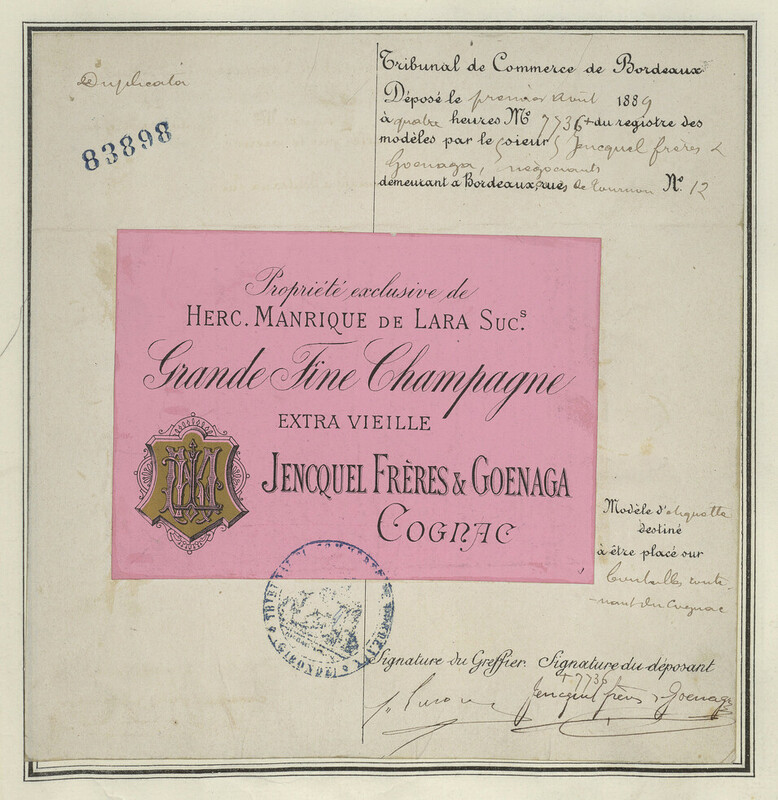 Duplicata
83898
Tribunal de Commerce de Bordeaux
Déposé le premier Août 1889
à quatre heures Mo 7736 + du registre des
modèles par le sieur s Jencquel frères &
Goenaga, négociants
demeurant à Bordeaux, rue de Tournon No. 12
Propriété exclusive de
HERC. MANRIQUE DE LARA SUCs.
Grande Fine Champagne
EXTRA VIEILLE
JENCQUEL FRÈRES & GOENAGA
COGNAC
Modèle d'etiquette
destiné
à être placé sur
bouteilles conte-
nant du Cognac
TRIBUNAL DE COMMERCE DE BORDEAUX
(GIRONDE)
Signature du Greffier. Signature du déposant
+ 7736
Jencquel frères & Goenaga